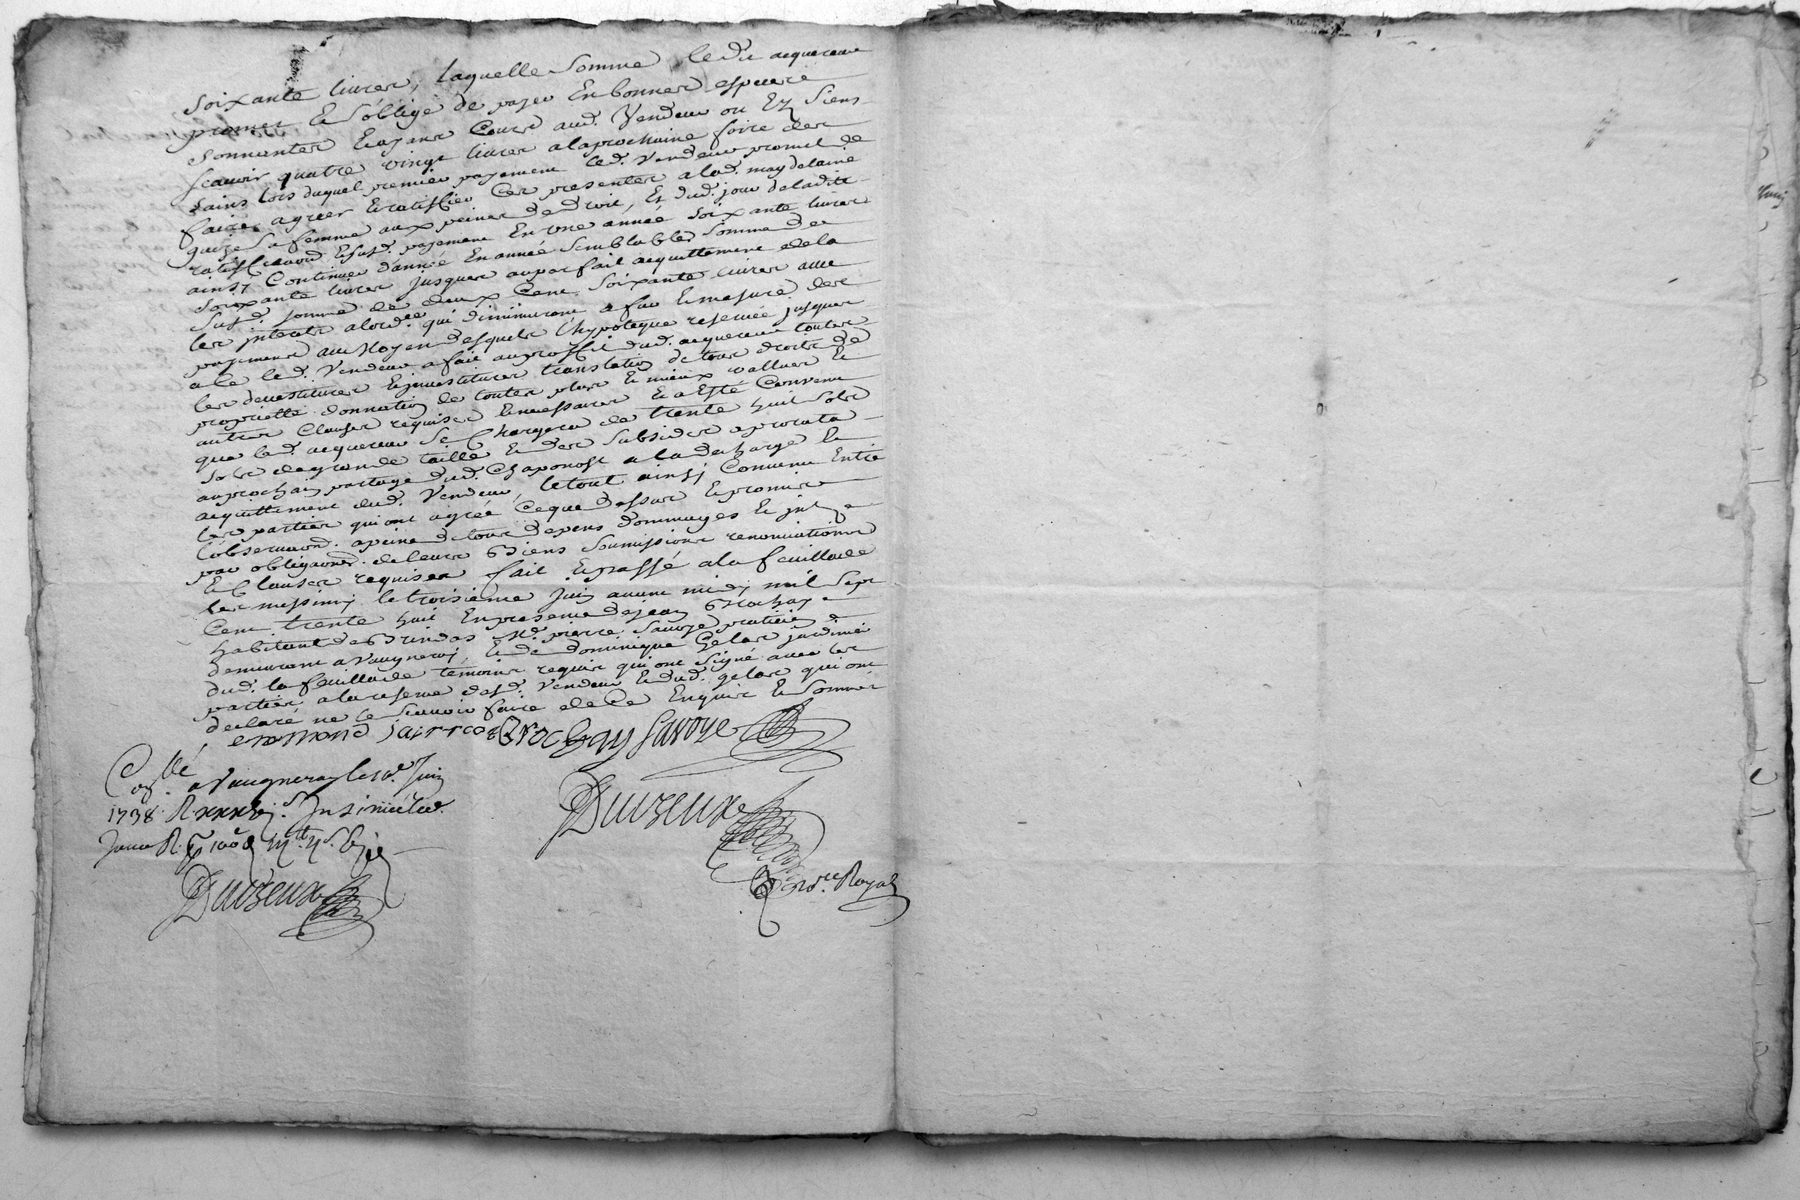 soixante livres, laquelle somme le dit acquereur
promet & s'oblige de payer en bonnes especes
sonnantes & ayans cours aud. vendeur ou es siens
scavoir quatre vingt livres a la prochaine foire des
saints lors duquel premier payement led. vendeur promet de
faire agreer & ratiffier ces presentes a lad. may delainé
sa femme aux peines de droit, et dud. jour de ladite
ratiffication & susd. payement en une année soixante livres
ainsy continuer d'année en année semblables somme de
soixante livres jusques au parfait acquittement de la
susd. somme de deux cent soixante livres avec
les interets a lord.re qui diminuront a fur & mesure des
payemens au moyen desquels l'hypoteque reservée jusques
a ce led. vendeur a fait au proffit dud. acquereur toutes
les devestitures & jnvestitures translation de tous droits de
proprietté donnation de toutes plus & mieux vallues &
autres clauses requises & necessaires & a esté convenu
que led. acquereur se chargera de trente huit sols
de grande taille & des subsides a prorata
au prochain partage dud. Chaponost a la decharge &
acquittement dud. vendeur, le tout ainsy convenu entre
les parties qui ont agréé ce que dessus & promis
l'observaon. a peine de tous depens dommages & jnt.
par obligaons. de leurs biens soumissions renonciations
& clauses requises fait & passé a la feuillade
les messimy le troisieme juin avant midy mil sept
cent trente huit en presence de jean Brochay
habitant de Brindas Mr. pierre Savoye praticien
demeurant a Vaugneray, & de dominique Gelas jardinier
dud. la feuillade temoins requis qui ont signé avec les
parties a la reserve desd. vendeur & dud. gelas qui ont
declaré ne le scavoir faire de ce enquis & sommés
Brochay Savoye
Con.llé a Vaugneray le 10.e Juin
1738. R. Insinué led.
Jour R.
Duvzeux
Duvzeux
No.re Royal